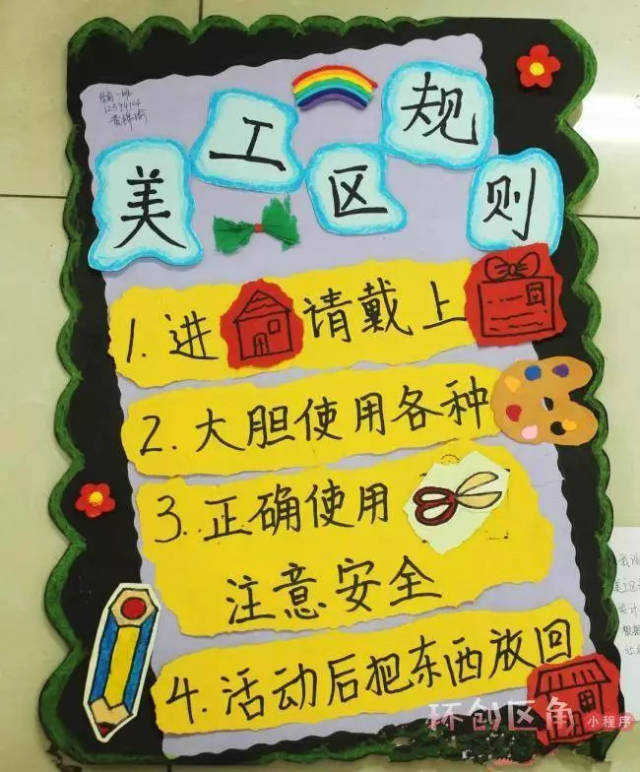 美工区规则
1. 进请戴上
2. 大胆使用各种
3. 正确使用
注意安全
4. 活动后把东西放回
环创区角
小程序